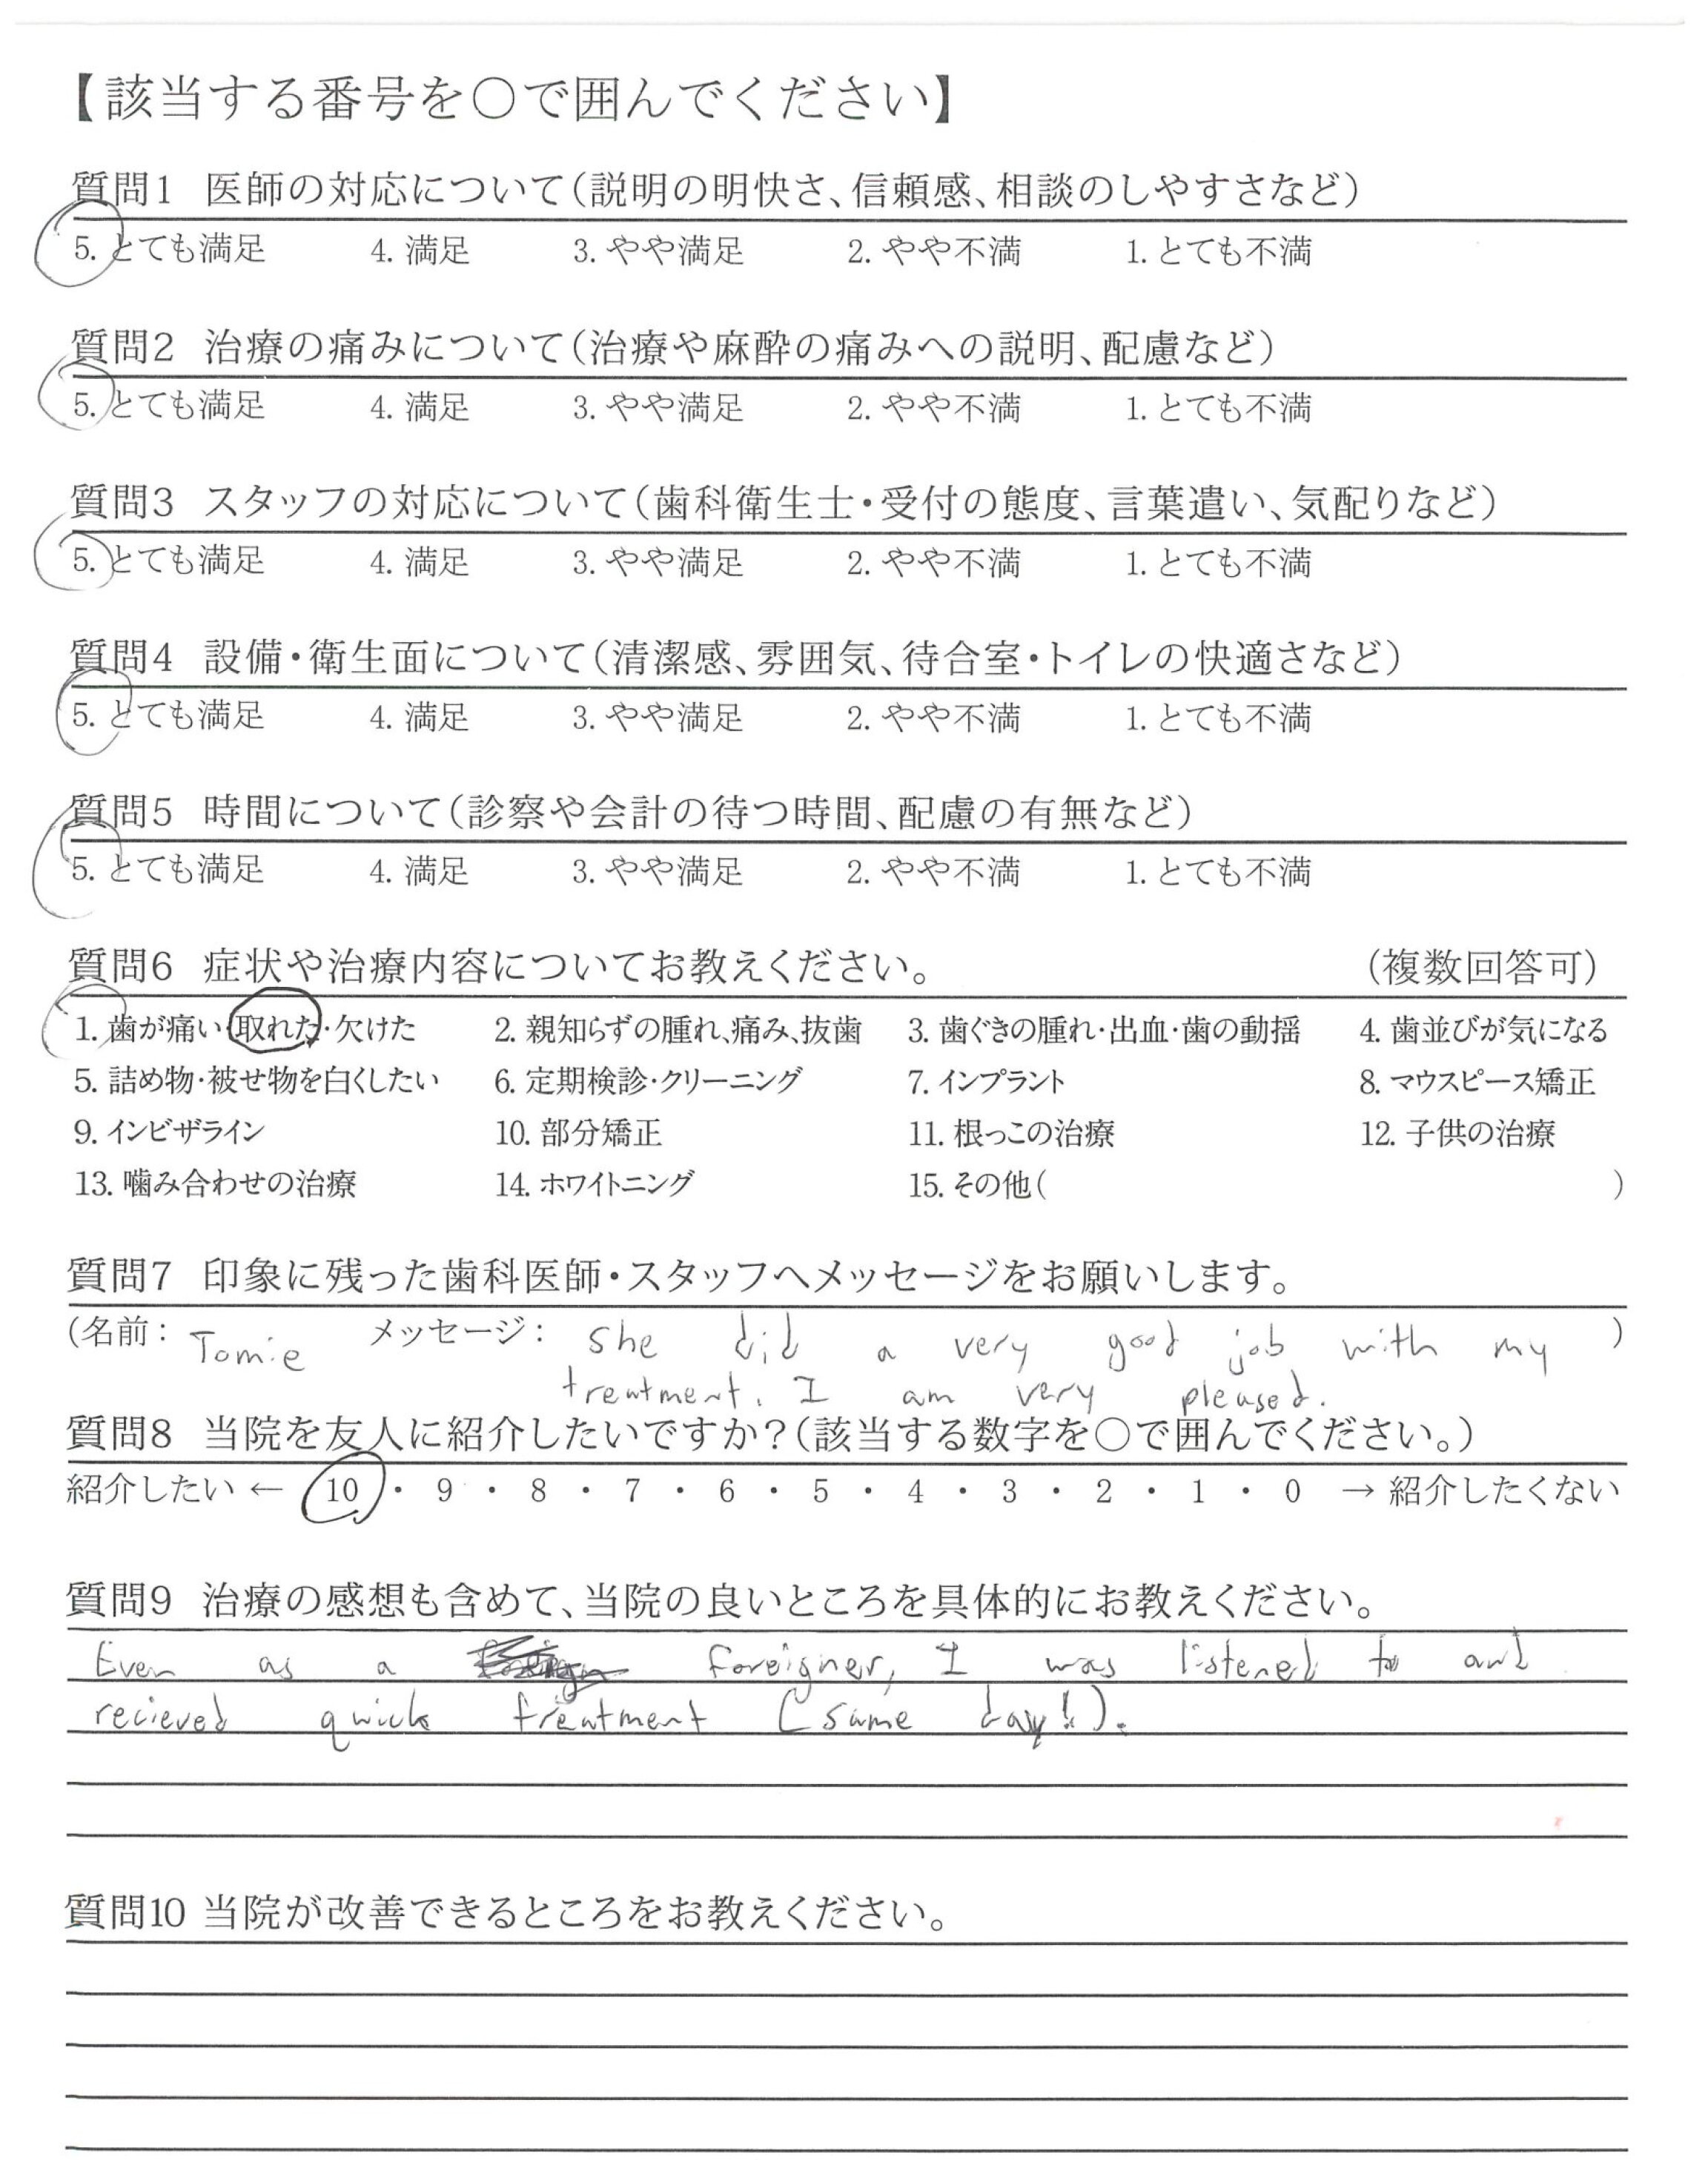 【該当する番号を○で囲んでください】
質問1 医師の対応について(説明の明快さ、信頼感、相談のしやすさなど)
5. とても満足 4. 満足 3. やや満足 2. やや不満 1. とても不満
質問2 治療の痛みについて(治療や麻酔の痛みへの説明、配慮など)
5. とても満足 4. 満足 3. やや満足 2. やや不満 1. とても不満
質問3 スタッフの対応について(歯科衛生士・受付の態度、言葉遣い、気配りなど)
5. とても満足 4. 満足 3. やや満足 2. やや不満 1. とても不満
質問4 設備・衛生面について(清潔感、雰囲気、待合室・トイレの快適さなど)
5. とても満足 4. 満足 3. やや満足 2. やや不満 1. とても不満
質問5 時間について(診察や会計の待つ時間、配慮の有無など)
5. とても満足 4. 満足 3. やや満足 2. やや不満 1. とても不満
質問6 症状や治療内容についてお教えください。 (複数回答可)
1. 歯が痛い・取れた・欠けた 2. 親知らずの腫れ、痛み、抜歯 3. 歯ぐきの腫れ・出血・歯の動揺 4. 歯並びが気になる
5. 詰め物・被せ物を白くしたい 6. 定期検診・クリーニング 7. インプラント 8. マウスピース矯正
9. インビザライン 10. 部分矯正 11. 根っこの治療 12. 子供の治療
13. 噛み合わせの治療 14. ホワイトニング 15. その他( )
質問7 印象に残った歯科医師・スタッフへメッセージをお願いします。
(名前: Tomie メッセージ: she did a very good job with my )
treatment. I am very pleased.
質問8 当院を友人に紹介したいですか?(該当する数字を○で囲んでください。)
紹介したい ← 10 ・ 9 ・ 8 ・ 7 ・ 6 ・ 5 ・ 4 ・ 3 ・ 2 ・ 1 ・ 0 → 紹介したくない
質問9 治療の感想も含めて、当院の良いところを具体的にお教えください。
Even as a foreigner, I was listened to and
recieved quick treatment (same day!).
質問10 当院が改善できるところをお教えください。